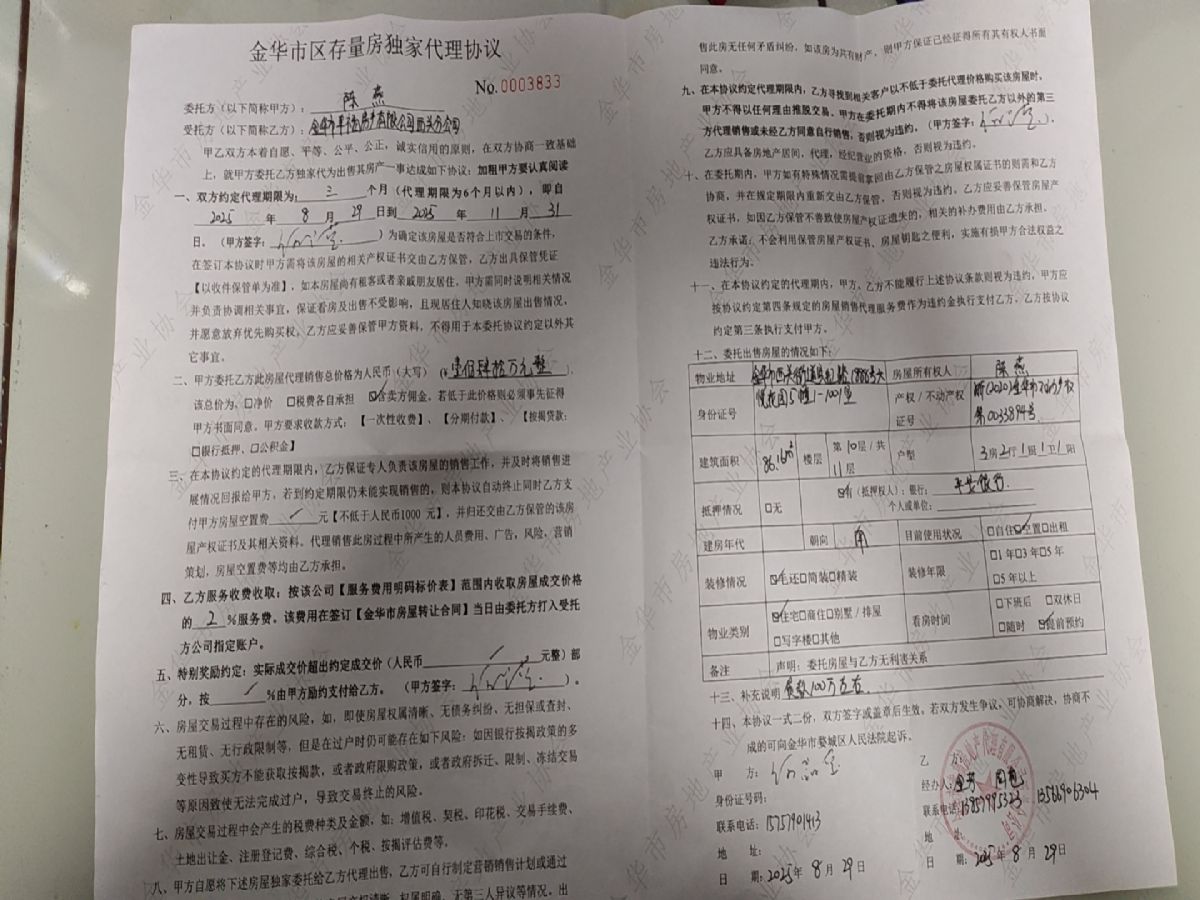 金华市区存量房独家代理协议
No.0003833
委托方(以下简称甲方): 陈燕
受托方(以下简称乙方):
甲乙双方本着自愿、平等、公平、公正,诚实信用的原则,在双方协商一致基础
上,就甲方委托乙方独家代为出售其房产一事达成如下协议:加租甲方要认真阅读
一、双方约定代理期限为: 三 个月(代理期限为6个月以内),即自
2025 年 8 月 29 日到 2025 年 11 月 31
日。(甲方签字: )为确定该房屋是否符合上市交易的条件,
在签订本协议时甲方需将该房屋的相关产权证书交由乙方保管,乙方出具保管凭证
【以收件保管单为准】,如本房屋尚有租客或者亲戚朋友居住,甲方需同时说明相关情况
并负责协调相关事宜,保证看房及出售不受影响,且现居住人知晓该房屋出售情况,
并愿意放弃优先购买权。乙方应妥善保管甲方资料,不得用于本委托协议约定以外其
它事宜。
二、甲方委托乙方此房屋代理销售总价格为人民币(大写)(¥壹佰肆拾万元整
该总价为、□净价 □税费各自承担 ☑含卖方佣金。若低于此价格则必须事先征得
甲方书面同意。甲方要求收款方式:【一次性收费】、【分期付款】、【按揭贷款:
□银行抵押、□公积金】
三、在本协议约定的代理期限内,乙方保证专人负责该房屋的销售工作,并及时将销售进
展情况回报给甲方,若到约定期限仍未能实现销售的,则本协议自动终止同时乙方支
付甲方房屋空置费 ✓ 元【不低于人民币1000 元】,并归还交由乙方保管的该房
屋产权证书及其相关资料。代理销售此房过程中所产生的人员费用、广告,风险,营销
策划,房屋空置费等均由乙方承担。
四、乙方服务收费收取:按该公司【服务费用明码标价表】范围内收取房屋成交价格
的 2 %服务费。该费用在签订【金华市房屋转让合同】当日由委托方打入受托
方公司指定账户。
五、特别奖励约定:实际成交价超出约定成交价(人民币 ✓ 元整)部
分,按 ✓ %由甲方励约支付给乙方。(甲方签字: )。
六、房屋交易过程中存在的风险,如,即使房屋权属清晰、无债务纠纷、无担保或查封、
无租赁、无行政限制等,但是在过户时仍可能存在如下风险:如因银行按揭政策的多
变性导致买方不能获取按揭款,或者政府限购政策,或者政府拆迁、限制、冻结交易
等原因致使无法完成过户,导致交易终止的风险。
七、房屋交易过程中会产生的税费种类及金额,如:增值税、契税、印花税、交易手续费、
土地出让金、注册登记费、综合税、个税、按揭评估费等。
八、甲方自愿将下述房屋独家委托给乙方代理出售,乙方可自行制定营销销售计划或通过
权属明确、无第三人异议等情况,出
售此房无任何矛盾纠纷,如该房为共有财产,则甲方保证已经征得所有其有权人书面
同意。
九、在本协议约定代理期限内,乙方寻找到相关客户以不低于委托代理价格购买该房屋时,
甲方不得以任何理由推脱交易。甲方在委托期内不得将该房屋委托乙方以外的第三
方代理销售或未经乙方同意自行销售,否则视为违约。(甲方签字: )。
乙方应具备房地产居间,代理,经纪营业的资格,否则视为违约。
十、在委托期内,甲方如有特殊情况需提前拿回由乙方保管之房屋权属证书的则需和乙方
协商,并在规定期限内重新交由乙方保管,否则视为违约。乙方应妥善保管房屋产
权证书,如因乙方保管不善致使房屋产权证遗失的,相关的补办费用由乙方承担。
乙方承诺:不会利用保管房屋产权证书、房屋钥匙之便利,实施有损甲方合法权益之
违法行为。
十一、在本协议约定的代理期内,甲方、乙方不能履行上述协议条款则视为违约,甲方应
按协议约定第四条规定的房屋销售代理服务费作为违约金执行支付乙方。乙方按协议
约定第三条执行支付甲方。
十二、委托出售房屋的情况如下:
物业地址 房屋所有权人 陈燕
悦花园5幢1-1001室
身份证号 产权/不动产权证号 浙(2020)金华市不动产权第0033894号
建筑面积 86.16㎡ 楼层 第10层/共11层 户型 3房2厅1厨1卫1阳
抵押情况 □无 ☑有(抵押权人):银行: 平安银行
个人或单位:
建房年代 朝向 南 目前使用状况 □自住☑空置□出租
装修情况 ☑毛还□简装□精装 装修年限 □1年□3年□5年
□5年以上
物业类别 ☑住宅□商住□别墅/排屋
□写字楼□其他 看房时间 □下班后 □双休日
□随时 ☑提前预约
备注 声明:委托房屋与乙方无利害关系
十三、补充说明 贷款100万左右.
十四、本协议一式二份,双方签字或盖章后生效。若双方发生争议,可协商解决,协商不
成的可向金华市婺城区人民法院起诉。
甲 方: 乙 方:
身份证号码: 经办人:
联系电话:15757901413 联系电话:13957995323 13566906304
地 址: 地 址:
日 期:2025年 8 月 29日 日 期:2025年 8 月 29日